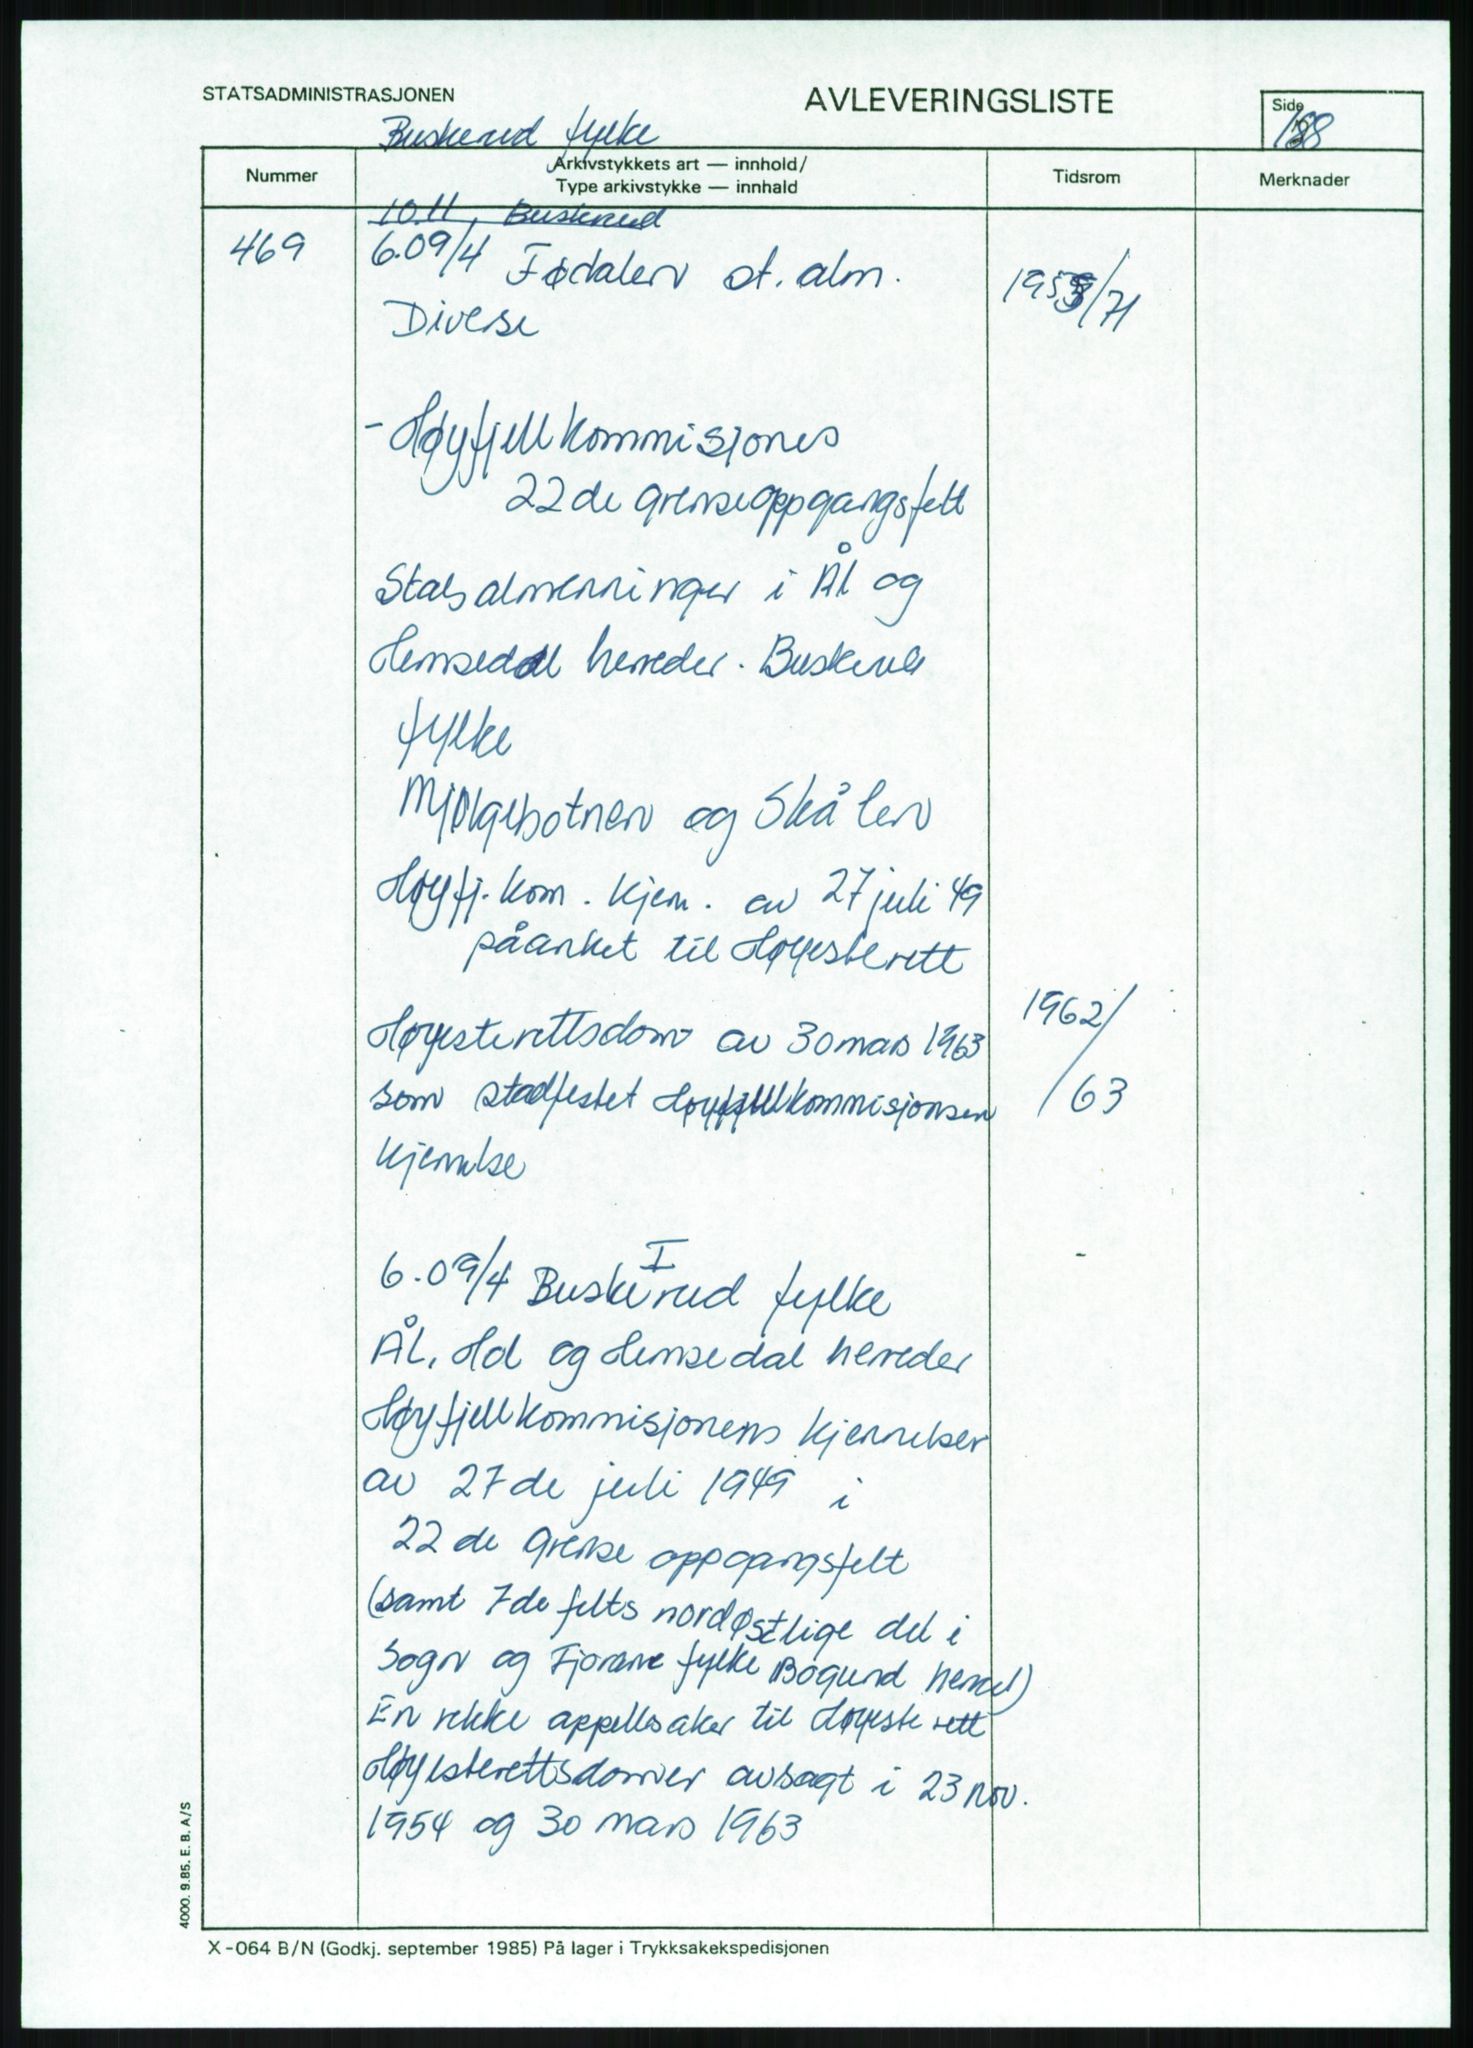 STATSADMINISTRASJONEN
AVLEVERINGSLISTE
Side
Buskerud fylke
Nummer
Arkivstykkets art — innhold/
Type arkivstykke — innhald
Tidsrom
Merknader
10.11, Buskerud
469
6.09/4 Fødalen st. alm.
Diverse
/71
- Høyfjellkommisjones
22de grenseoppgangsfelt
Statsalmenninger i Ål og
Hemsedal herreder. Buskerud
fylke
og Skålen
Høyfj. kom. kjen. av 27 juli 49
påanket til Høyesterett
1962/
Høyesterettsdom av 30 mars 1963
som stadfestet Høyfjellkommisjonsen
/63
kjennelse
I
6.09/4 Buskerud fylke
Ål, Hol og Hemsedal herreder
Høyfjellkommisjonens kjennelser
av 27de juli 1949 i
22de grense oppgangsfelt
(samt 7de felts nordøstlige del i
Sogn og Fjorane fylke Borgund herred)
En rekke appellsaker til Høyesterett
Høyesterettsdommer avsagt i 23 nov.
1954 og 30 mars 1963
4000. 9.85. E. B. A/S
X-064 B/N (Godkj. september 1985) På lager i Trykksakekspedisjonen